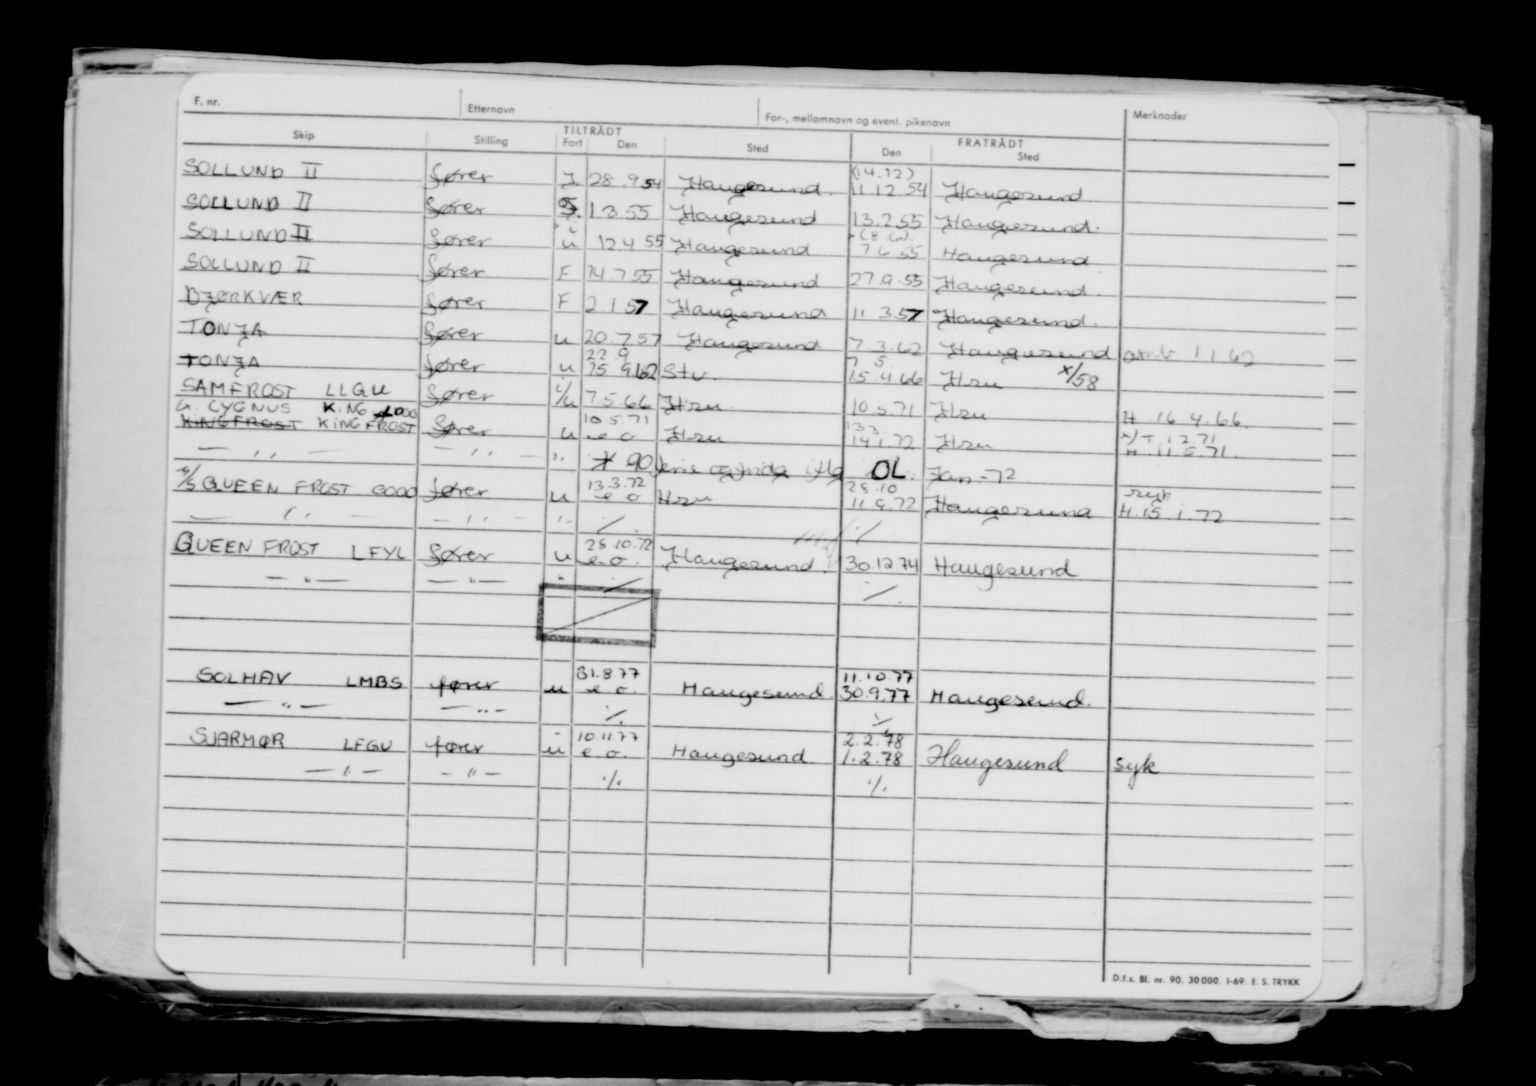 F. nr. Etternavn For-, mellomnovn og event. pikenavn Merknader
TILTRÅDT FRATRÅDT
Skip Stilling Fart Den Sted Den Sted
(14.12)
SOLLUND II fører 28.9 54 Haugesund. 11.12.54 Haugesund
SOLLUND II fører 1 3.55 Haugesund 13.2.55 Haugesund.
SOLLUND II fører u 12.4 55 Haugesund 7 6 55 Haugesund
SOLLUND II fører F 14.7 55 Haugesund 27.9.55 Haugesund.
BJØRKVÆR fører F 2.1 57 Haugesund 11 3.57 Haugesund.
TONJA fører u 20.7.57 Haugesund 7.3.62 Haugesund amb 1 1 62
22.9 7 5.
TONJA fører u 25 9.62 Stv. 15.4 66 Hsu x/58
SAMFROST LLGU fører i/u 7.5.66 Hsu 10.5.71 Hsu H. 16.4.66.
CYGNUS KING 1000 10 5.71 13 3. 1 2 71
KINGFROST KINGFROST fører u e o Hsu 14 1.72 Hsu H. 11.5.71.
— ,, — — ,, — ,, 90 OL. Jan - 72
13.3.72 28.10 syk
M/S QUEEN FROST 0000 fører u e o Hsu 11 9.72 Haugesund H.15.1.72
— ,, — — ,, — ,, ./. ./.
28.10.72
QUEEN FROST LFYL fører u e.o. Haugesund. 30.12.74 Haugesund
— " — — " — " ./. ./.
31.8.77 11.10.77
SOLHAV LMBS fører u e.o. Haugesund. 30.9.77 Haugesund.
— " — — " — ./. ./.
10.11.77 2.2.78
SJARMØR LFGU fører u e.o. Haugesund 1.2.78 Haugesund syk
— " — — " — ./. ./.
D.f.s. Bl. nr. 90. 30 000. 1-69. E. S. TRYKK